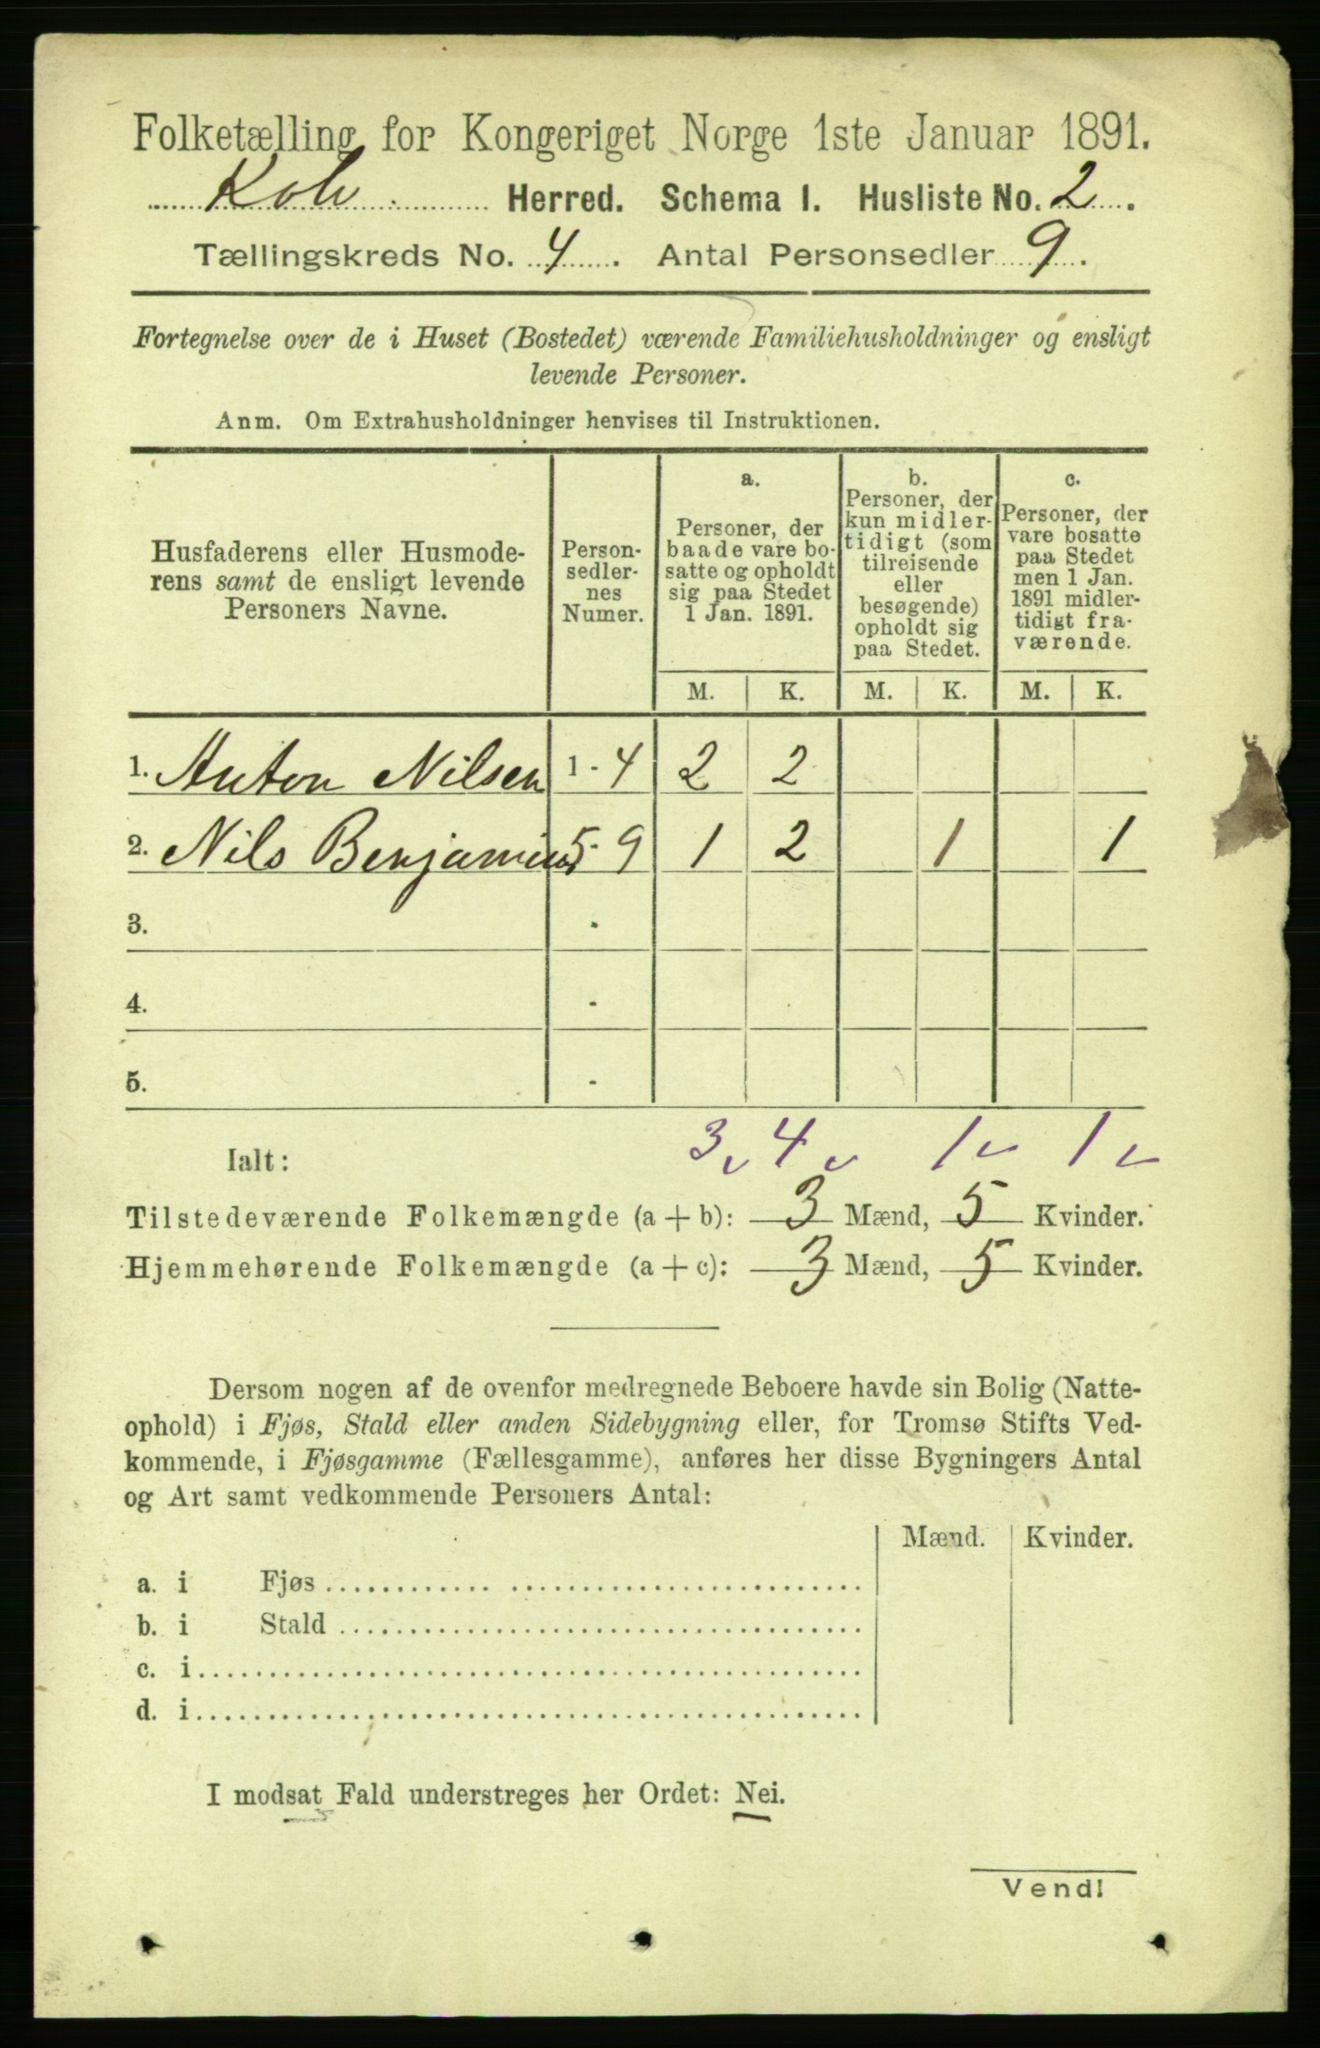 Folketælling for Kongeriget Norge 1ste Januar 1891.
Kolv Herred. Schema I. Husliste No. 2.
Tællingskreds No. 4. Antal Personsedler 9.
Fortegnelse over de i Huset (Bostedet) værende Familiehusholdninger og ensligt
levende Personer.
Anm. Om Extrahusholdninger henvises til Instruktionen.
Husfaderens eller Husmode-
rens samt de ensligt levende
Personers Navne.
Person-
sedler-
nes
Numer.
a.
Personer, der
baade vare bo-
satte og opholdt
sig paa Stedet
1 Jan. 1891.
b.
Personer, der
kun midler-
tidigt (som
tilreisende
eller
besøgende)
opholdt sig
paa Stedet.
c.
Personer, der
vare bosatte
paa Stedet
men 1 Jan.
1891 midler-
tidigt fra-
værende.
M. K. M. K. M. K.
1. Anton Nilsen 1 - 4 2 2
2. Nils Benjamins 5 - 9 1 2 1 1
3. -
4. -
5. -
Ialt: 3 4 1 1
Tilstedeværende Folkemængde (a + b): 3 Mænd, 5 Kvinder.
Hjemmehørende Folkemængde (a + c): 3 Mænd, 5 Kvinder.
Dersom nogen af de ovenfor medregnede Beboere havde sin Bolig (Natte-
ophold) i Fjøs, Stald eller anden Sidebygning eller, for Tromsø Stifts Ved-
kommende, i Fjøsgamme (Fællesgamme), anføres her disse Bygningers Antal
og Art samt vedkommende Personers Antal:
Mænd. Kvinder.
a. i Fjøs
b. i Stald
c. i
d. i
I modsat Fald understreges her Ordet: Nei.
Vend!